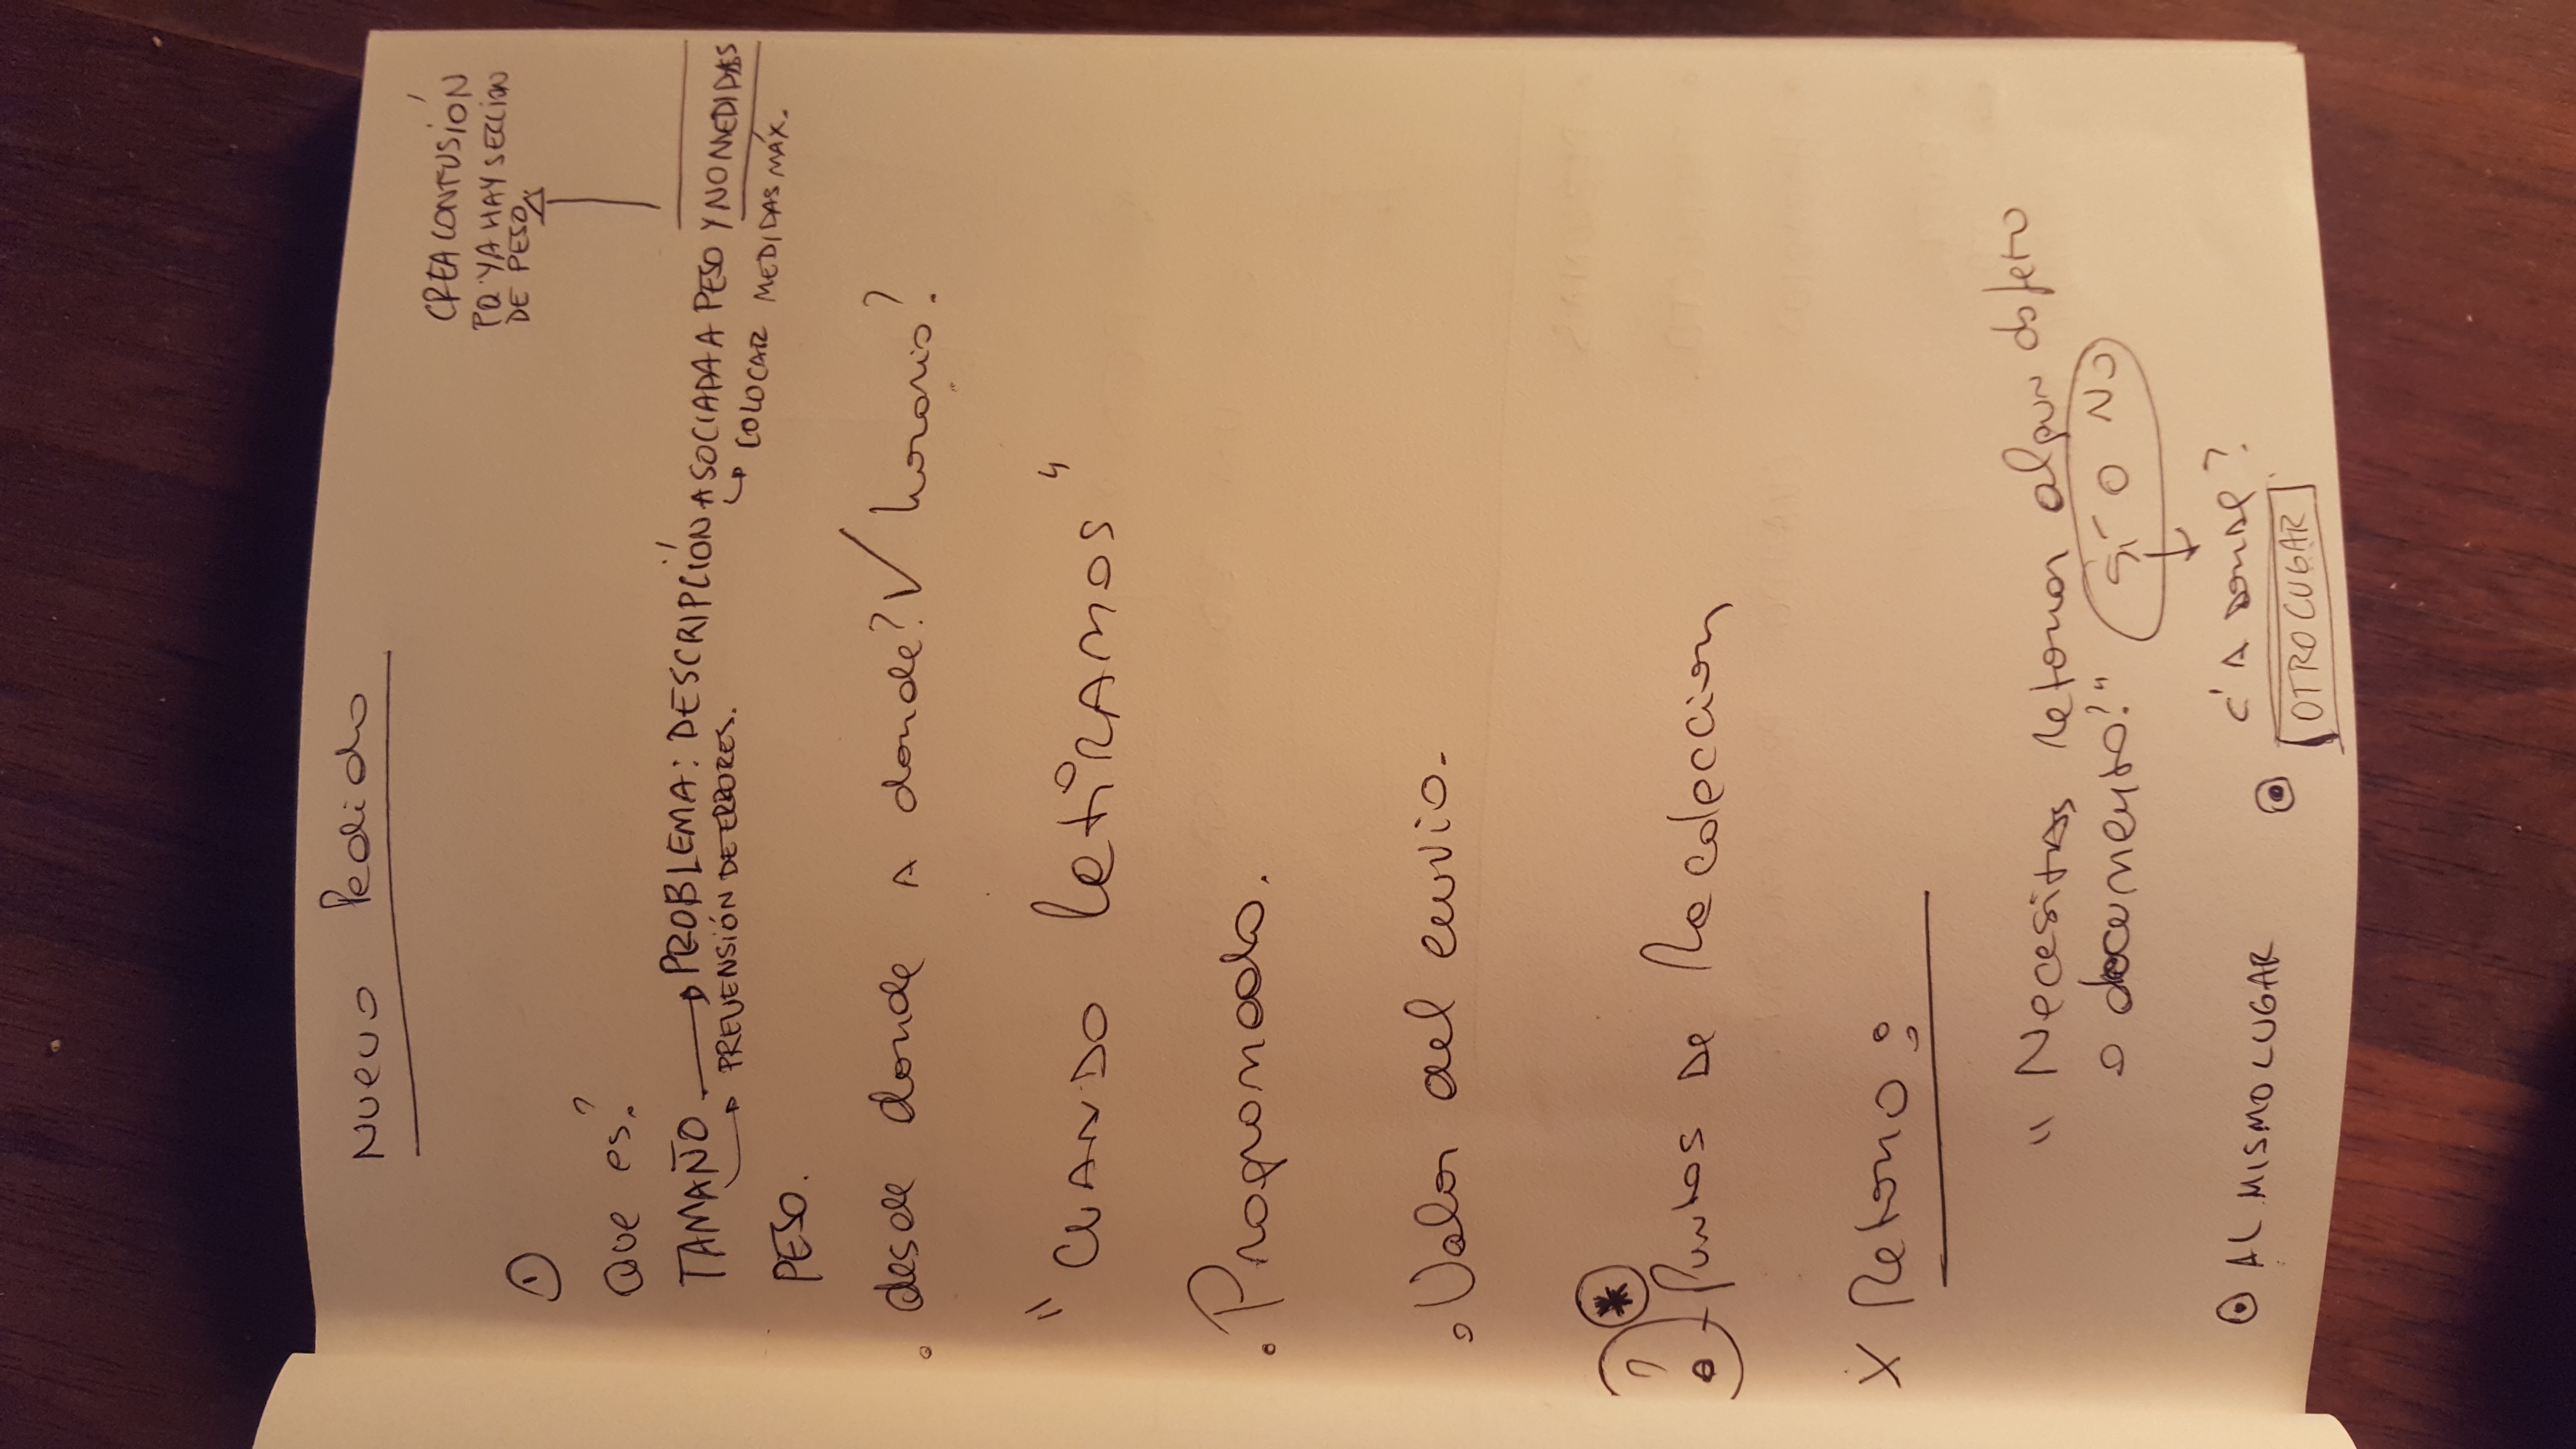 Nuevo Pedido
CREA CONFUSIÓN
PQ YA HAY SECCION
DE PESO
①
Que es?
TAMAÑO → PROBLEMA: DESCRIPCIÓN ASOCIADA A PESO Y NO MEDIDAS
PREVENSIÓN DE ERRORES.
COLOCAR MEDIDAS MÁX.
PESO.
desde donde A donde? ✓ horario?
"CUANDO RetiRAMOS"
Programado.
Valor del envio.
*
? Puntos De Recoleccion
X Retorno:
"Necesitas retornar algun objeto
o documento?" SÍ O NO
¿A DONDE?
AL MISMO LUGAR
OTRO LUGAR